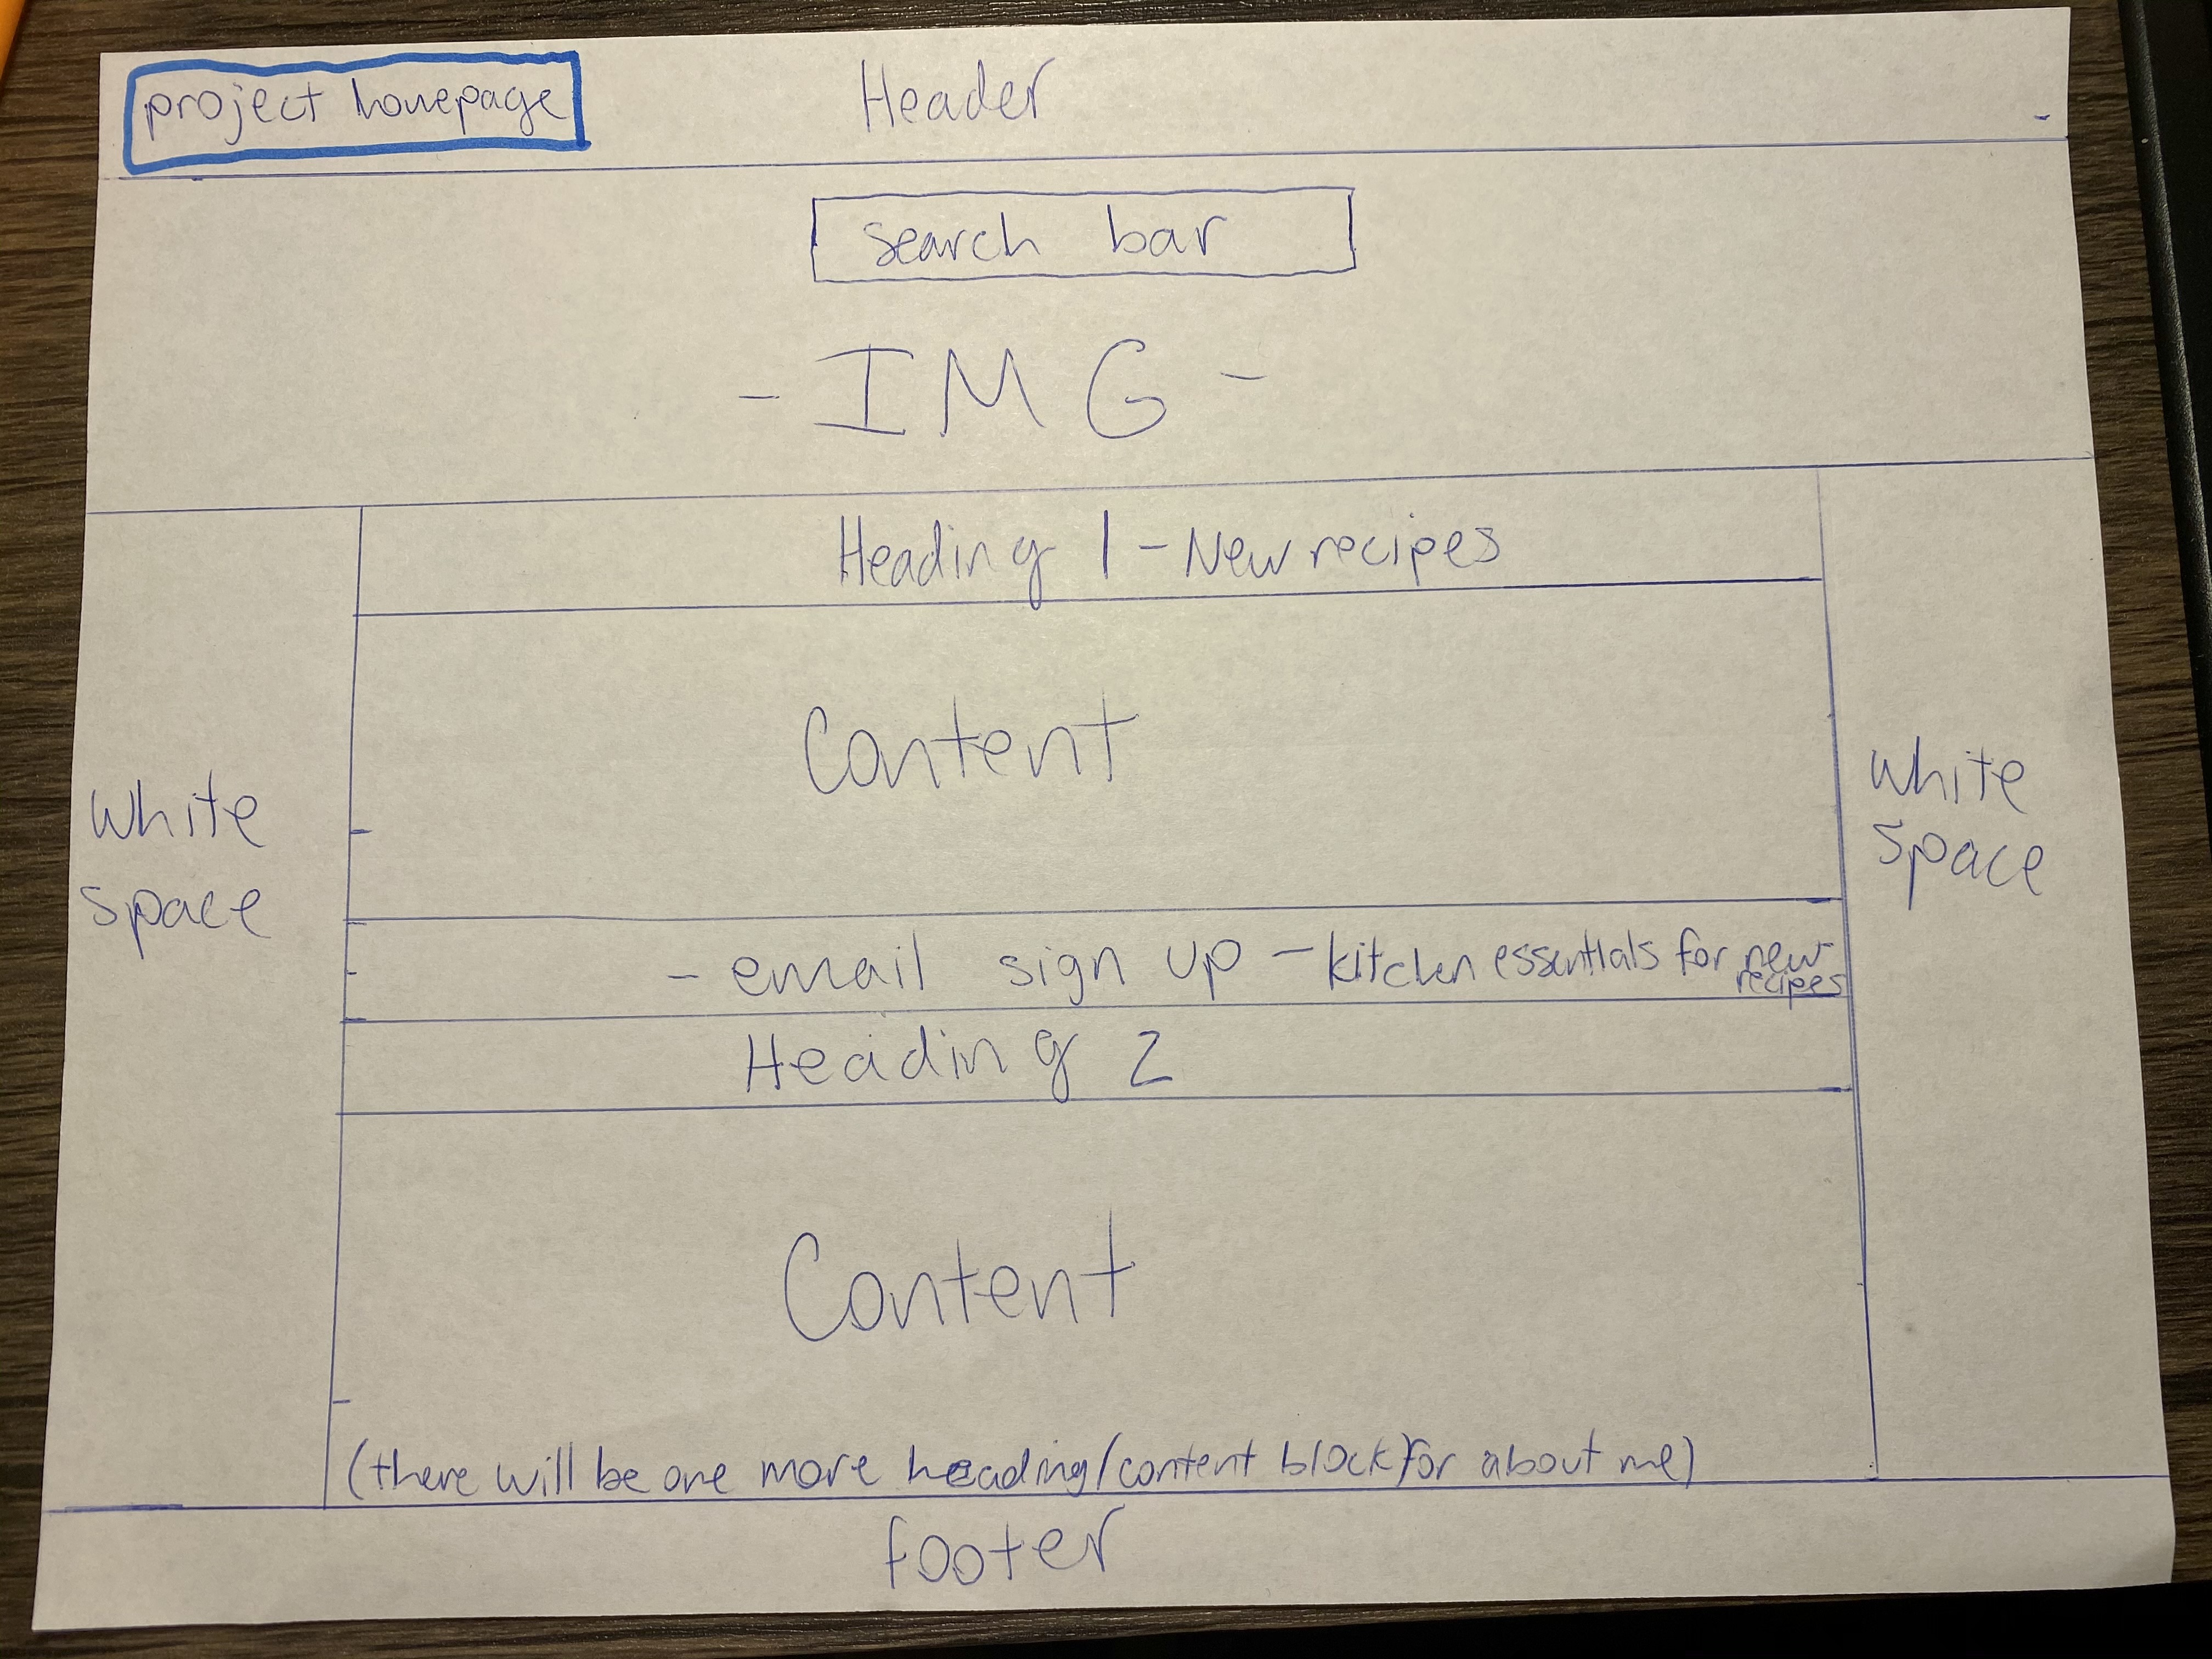 project homepage
Header
search bar
- IMG -
Heading 1 - New recipes
Content
White
space
White
space
- email sign up - kitchen essentials for new
recipes
Heading 2
Content
(there will be one more heading/content block) for about me)
footer